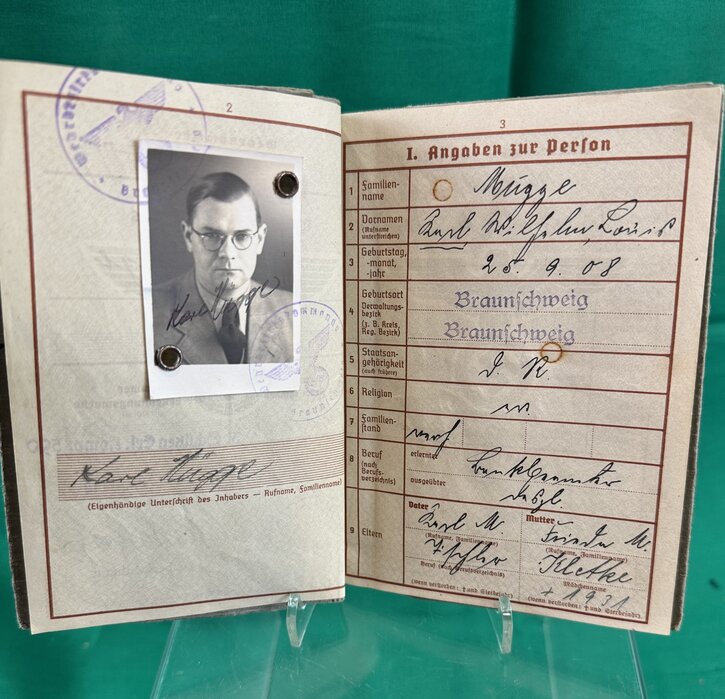 2
Karl Mügge
Karl Mügge
(Eigenhändige Unterschrift des Inhabers — Rufname, Familienname)
3
I. Angaben zur Person
1 Familien-
name
Mügge
2 Vornamen
(Rufname
unterstreichen)
Karl Wilhelm, Louis
3 Geburtstag,
-monat,
-jahr
25. 9. 08
4 Geburtsort
Verwaltungs-
bezirk
(z. B. Kreis,
Reg. Bezirk)
Braunschweig
Braunschweig
5 Staatsan-
gehörigkeit
(auch frühere)
d. R.
6 Religion
7 Familien-
stand
verh
8 Beruf
(nach
Berufs-
verzeichnis)
erlernter
Bankbeamter
ausgeübter
desgl.
9 Eltern
Vater
Karl M.
(Rufname, Familienname)
Tischler
Beruf (nach Berufsverzeichnis)
(wenn verstorben: † und Sterbejahr)
Mutter
Frieda M.
(Rufname, Familienname)
Kletke
Mädchenname
+ 1931
(wenn verstorben: † und Sterbejahr)